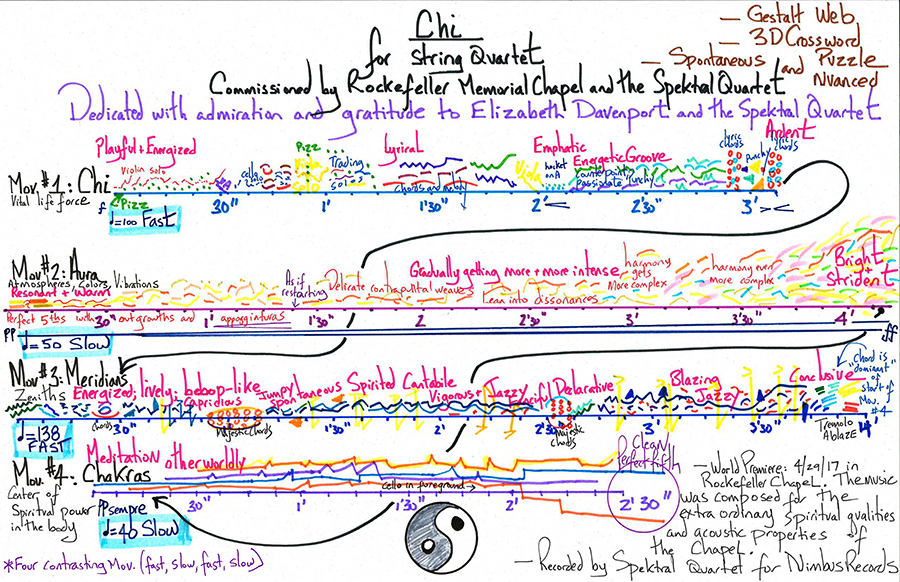 Chi
for String Quartet
Commissioned by Rockefeller Memorial Chapel and the Spektral Quartet
Dedicated with admiration and gratitude to Elizabeth Davenport and the Spektral Quartet
— Gestalt Web
— 3D Crossword Puzzle
— Spontaneous and Nuanced
Playful + Energized
Pizz
Lyrical
Emphatic
Energetic Groove
Ardent
Violin solo
cello solo
Viola solo
Trading solos
chords and melody
Violin
hocket on A
counterpoint, passionate, punchy
lyric chords
punchy
chords
Mov. #1: Chi
Vital life force
f
Pizz
♩=100 Fast
30"
1'
1'30"
2'
<
2'30"
3'
> <
Mov #2: Aura
Atmospheres, Colors, Vibrations
Resonant + Warm
As if restarting
Delicate contrapuntal weave
Gradually getting more + more intense
Lean into dissonances
harmony gets more complex
harmony even more complex
Bright + Strident
Perfect 5ths with outgrowths and appoggiaturas
30"
1'
1'30"
2'
2'30"
3'
3'30"
4'
PP
ff
♩=50 Slow
Mov #3: Meridians
Zeniths
Energized; lively; bebop-like
Capricious
Jumpy
Spontaneous
Spirited Cantabile
Vigorous +
Jazzy
Declarative
Blazing
Jazzy
Conclusive
"Chord is "dominant" of start of Mov. #4
chords
Majestic Chords
Majestic Chords
30"
1'
1'30"
2'
2'30"
3'
3'30"
4'
Tremolo Ablaze
♩=138 FAST
Mov. #4: Chakras
Center of Spiritual power in the body
Meditation otherworldly
cello in foreground →
Clean perfect fifth
PP sempre
30"
1'
1'30"
2'
2'30"
♩=40 Slow
*Four contrasting Mov. (fast, slow, fast, slow)
— World Premiere: 4/29/17 in Rockefeller Chapel. The music was composed for the extra ordinary spiritual qualities and acoustic properties of the Chapel.
— Recorded by Spektral Quartet for Nimbus Records